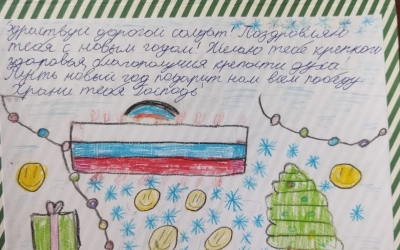 Здравствуй дорогой солдат! Поздравляю
тебя с новым годом! Желаю тебе крепкого
здоровья, благополучия крепости духа!
Пусть новый год подарит нам всем победу.
Храни тебя Господь